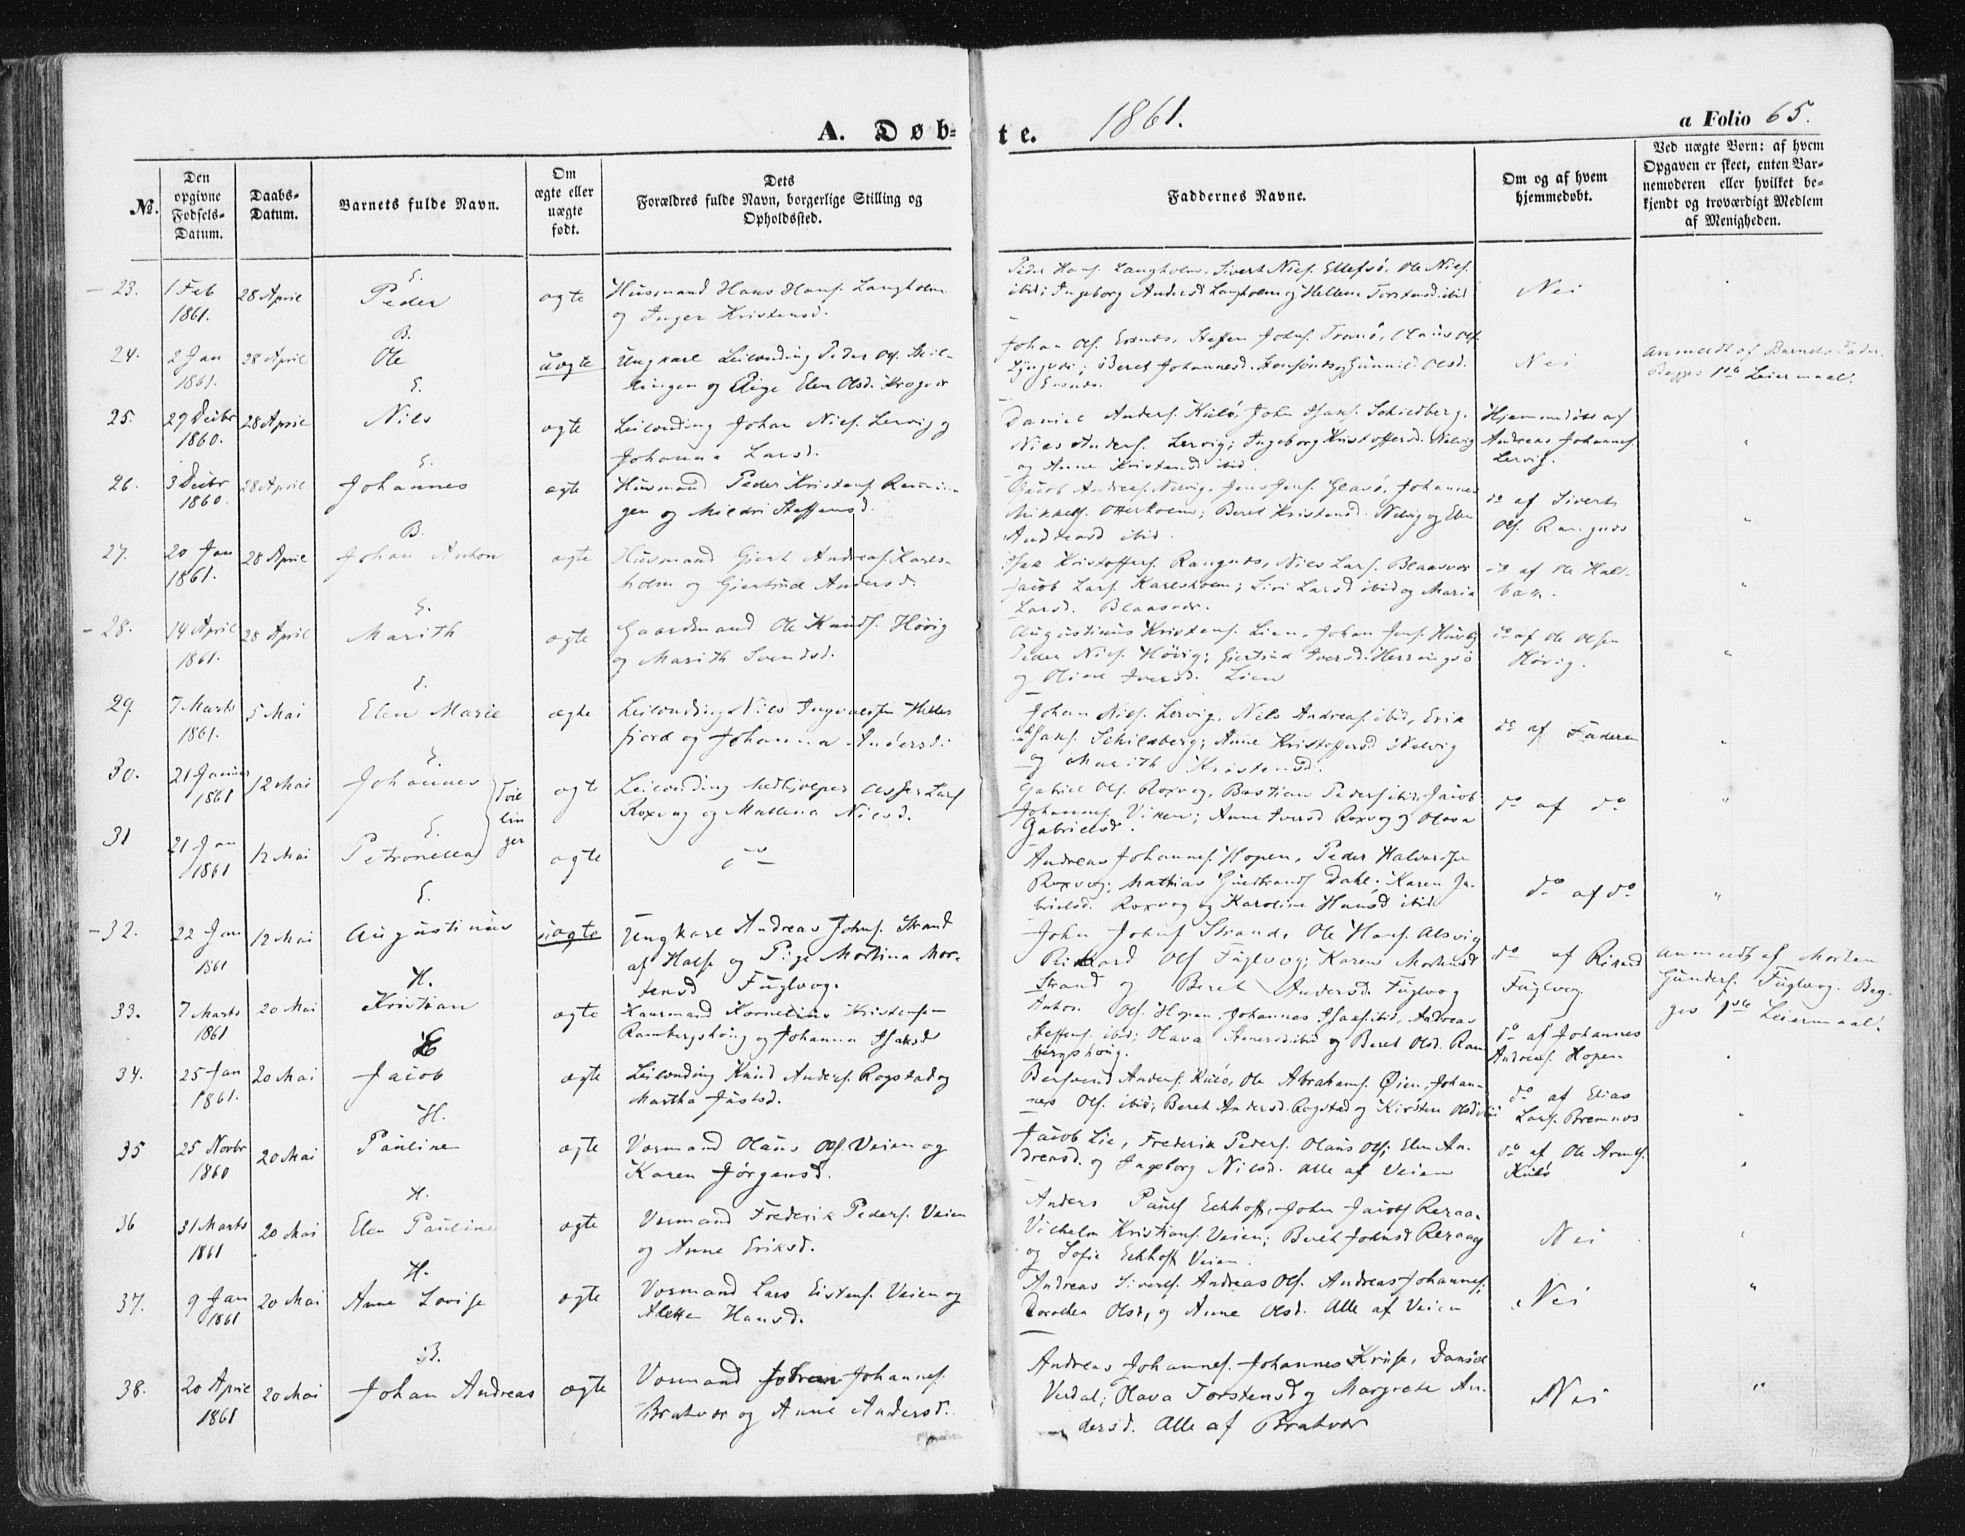 A. Døb=
te. 1861. a Folio 65.
№.
Den opgivne Fødsels-Datum.
Daabs-Datum.
Barnets fulde Navn.
Om ægte eller uægte født.
Dets Forældres fulde Navn, borgerlige Stilling og Opholdssted.
Faddernes Navne.
Om og af hvem hjemmedøbt.
Ved uægte Børn: af hvem Opgaven er skeet, enten Barnemoderen eller hvilket bekjendt og troværdigt Medlem af Menigheden.
23. 1 Feb 1861. 28 April E. Peder ægte
Husmand Hans Hans. Langholm
og Inger Kristensd.
Peder Hans. Langholm, Sivert Niels. Ellefsö, Ole Niels.
ibid; Ingeborg Andersd Langholm og Hellene Torstensd. ibid
Nei
24. 2 Jan 1861. 28 April B. Ole uægte
Ungkarl Leilending Peder Ols.
og Pige Elen Olsd.
Johan Ols. Steffen Johns. Tromö, Olaus Ols.
Beret Johannesd. og Gunnild Olsd.
Nei
anmeldt af Barnets Fader.
Begges 1ste Leiermaal.
25. 29 Decbr 1860. 28 April E. Nils ægte
Leilending Johan Niels. Lervig og
Johanna Larsd.
Daniel Anders. Kulö, John Isaks. Schieldberg.
Niels Anders. Lervig; Ingeborg Kristoffersd. Nelvig
og Anne Kristensd ibid.
Hjemmedöbt af
Andreas Johannes.
Lervig.
26. 3 Decbr 1860. 28 April E. Johannes ægte
Husmand Peder Kristens.
gen og Steffensd.
Jacob Andreas. Nelvig, Jens Jens. Glasö, Johannes
Mikkels. Otterholm; Beret Kristensd. Nelvig og Elen
Andreasd ibid.
do af Sivert
Ols. Rangnæs
27. 20 Jan 1861. 28 April B. Johan Anton ægte
Husmand Gjert Andreas. Karls-
holm og Gjertrud Andersd.
Isak Kristoffers. Rangnæs, Niels Lars. Blaasvær
Jacob Lars. Karlsholm; Siri Larsd ibid og Maria
Larsd. Blaasvær.
do af Ole Hals-
bak.
28. 14 April 1861. 28 April E. Marith ægte
Gaardmand Ole Knuds. Hövig
og Marith Svendsd.
Augustinus Kristens. Lien, Johan Jens. Husby
Peder Niels. Hövig; Gjertrud Iversd. Herringsö
og Oline Iversd. Lien
do af Ole Olsen
Hövig.
29 7 Marts 1861. 5 Mai E. Elen Marie ægte
Leilending Nils Ingvaldsen
fjord og Johanna Andersd.
Johan Niels. Lervig, Nils Andreas. ibid, Erik
Isaks. Schildberg; Anne Kristoffersd Nelvig
og Marith Kristensd.
do af Faderen
30. 21 Januar 1861 12 Mai E. Johannes Tvillinger ægte
Leilending Medhjælper Lars
Roxvog og Mallena Nielsd.
Gabriel Ols. Roxvog, Bastian Peders. ibid, Jacob
Johannes. Viken; Anne Iversd Roxvog og Olava
Gabrielsd.
do af do
31 21 Jan 1861 12 Mai E. Petronella ægte
do
Andreas Johannes. Hopen, Peder Halvorsen
Roxvog; Mathias Guldbrands Dahl; Karen Ga-
brielsd. Roxvog og Karoline Hansd ibid
do af do
32. 22 Jan 1861 12 Mai E. Augustinus uægte
Ungkarl Andreas Johns. Strand
af Halse og Pige Martina Mor-
tensd Fuglvog.
John Johns Strand, Ole Hans. Alsvig
Rikard Ols Fuglvog; Karen Mortensd
Strand og Beret Andersd. Fuglvog
do af Rikard
Fuglvog
anmeldt af Morten
Gunders. Fuglvog. Beg-
ges 1ste Leiermaal.
33. 7 Marts 1861 20 Mai H. Kristian ægte
Kaarmand Kornelius Kristensen
Rambergshöug og Johanna Isaksd
Anton Ols. Hopen, Johannes Isaks. ibid, Andreas
Steffens. ibid; Olava ibid og Beret Olsd. Ram-
bergshöug.
do af Johannes
Andreas. Hopen
34. 25 Jan 1861. 20 Mai E Jacob ægte
Leilending Knud Anders. Rogstad og
Martha Justsd.
Bersvend Anders. Kulö, Ole Abrahams. Öien, Johan-
nes Ols. ibid; Beret Andersd. Rogstad og Kirsten Olsd ibid
do af Elias
Lars. Bremnæs
35 25 Novbr 1860 20 Mai H. Pauline ægte
Vormand Olaus Ols. Veien og
Karen Jörgensd.
Jacob Lie, Frederik Peders. Olaus Ols; Elen An-
dreasd. og Ingeborg Nilsd. Alle af Veien
do af Ole Arnts.
Kulö
36 31 Marts 1861 20 Mai H. Elen Pauline ægte
Vormand Frederik Peders. Veien
og Anne Eriksd.
Anders Pauls Eckhoff, John Jacobs Reraa-
Vilhelm Kristians. Veien; Beret Johnsd Reraag
og Sofie Eckhoff Veien.
Nei
37. 9 Jan 1861 20 Mai H. Anne Lovise ægte
Vormand Lars Eistens. Veien og
Alette Hansd.
Andreas Siverts. Andreas Ols. Andreas Johannes;
Dorothea Olsd, og Anne Olsd. Alle af Veien
Nei
38. 20 April 1861 20 Mai B. Johan Andreas ægte
Vormand Johan Johannes.
Bratvær og Anne Andersd.
Andreas Johannes. Johannes Kruse, Daniel
Verdal; Olava Torstensd og Margrete An-
dersd. Alle af Bratvær
Nei